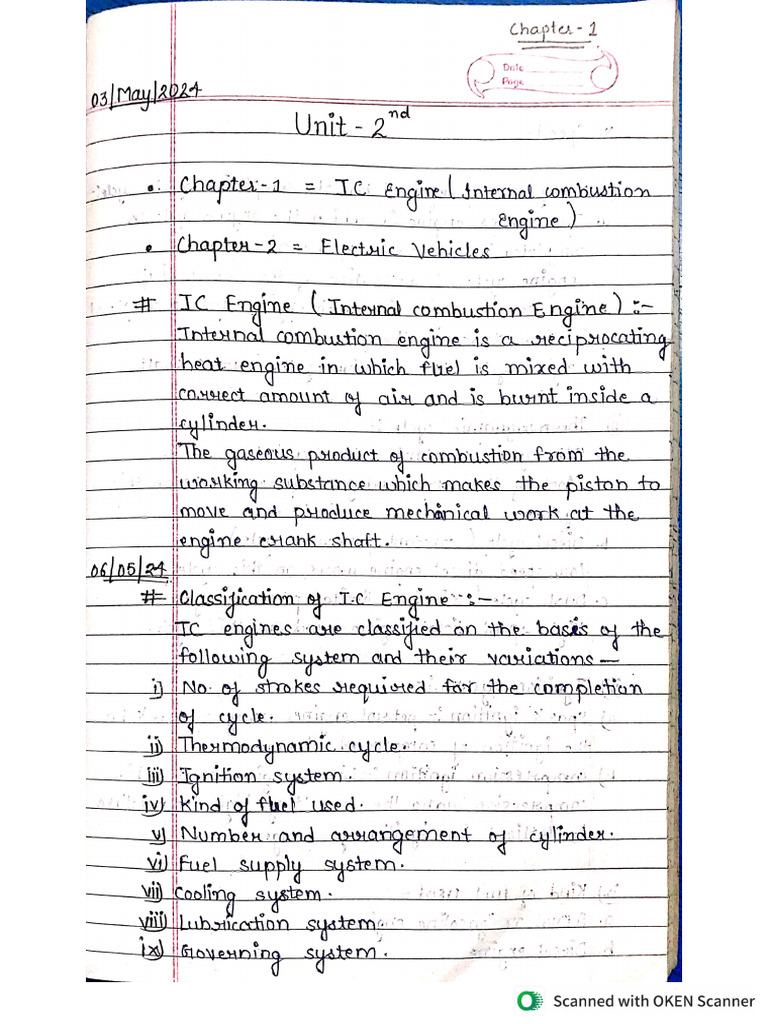 Chapter - 1
Date
Page
03/May/2024
Unit - 2nd
• Chapter-1 = I.C Engine (Internal combustion
engine)
• Chapter-2 = Electric Vehicles
# IC Engine (Internal combustion Engine) :-
Internal combustion engine is a reciprocating
heat engine in which fuel is mixed with
correct amount of air and is burnt inside a
cylinder.
The gaseous product of combustion from the
working substance which makes the piston to
move and produce mechanical work at the
engine crank shaft.
06/05/24
# Classification of I.C Engine :-
IC engines are classified on the basis of the
following system and their variations —
i) No. of strokes required for the completion
of cycle.
ii) Thermodynamic cycle.
iii) Ignition system.
iv) Kind of fuel used.
v) Number and arrangement of cylinder.
vi) Fuel supply system.
vii) Cooling system.
viii) Lubrication system
ix) Governing system.
Scanned with OKEN Scanner